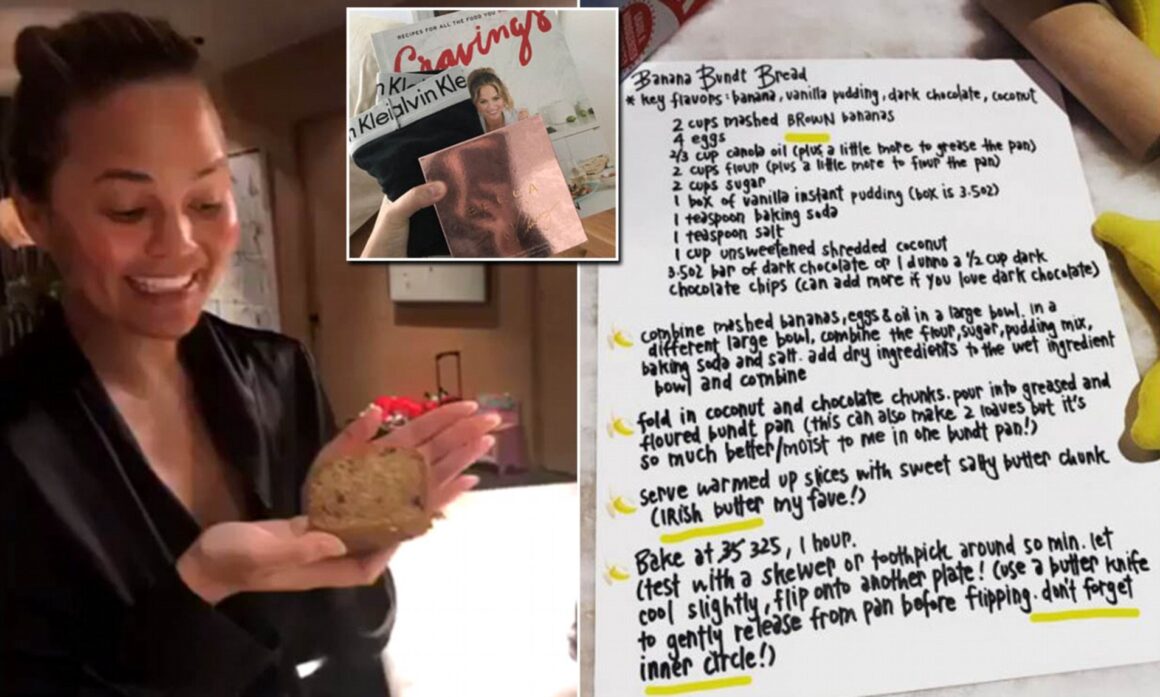 RECIPES FOR ALL THE FOOD YOU
Cravings
n Kle
alvin Klein
n Klei
Banana Bundt Bread
* key flavors: banana, vanilla pudding, dark chocolate, coconut
2 cups mashed BROWN bananas
4 eggs
2/3 cup canola oil (plus a little more to grease the pan)
2 cups flour (plus a little more to flour the pan)
2 cups sugar
1 box of vanilla instant pudding (box is 3.5oz)
1 teaspoon baking soda
1 teaspoon salt
1 cup unsweetened shredded coconut
3.5oz bar of dark chocolate or I dunno a 1/2 cup dark
chocolate chips (can add more if you love dark chocolate)
combine mashed bananas, eggs & oil in a large bowl. in a
different large bowl, combine the flour, sugar, pudding mix,
baking soda and salt. add dry ingredients to the wet ingredient
bowl and combine
fold in coconut and chocolate chunks. pour into greased and
floured bundt pan (this can also make 2 loaves but it's
so much better/moist to me in one bundt pan!)
serve warmed up slices with sweet salty butter chunk
(IRISH butter my fave!)
Bake at 35 325, 1 hour.
(test with a skewer or toothpick around 50 min. let
cool slightly, flip onto another plate! (use a butter knife
to gently release from pan before flipping. don't forget
inner circle!)